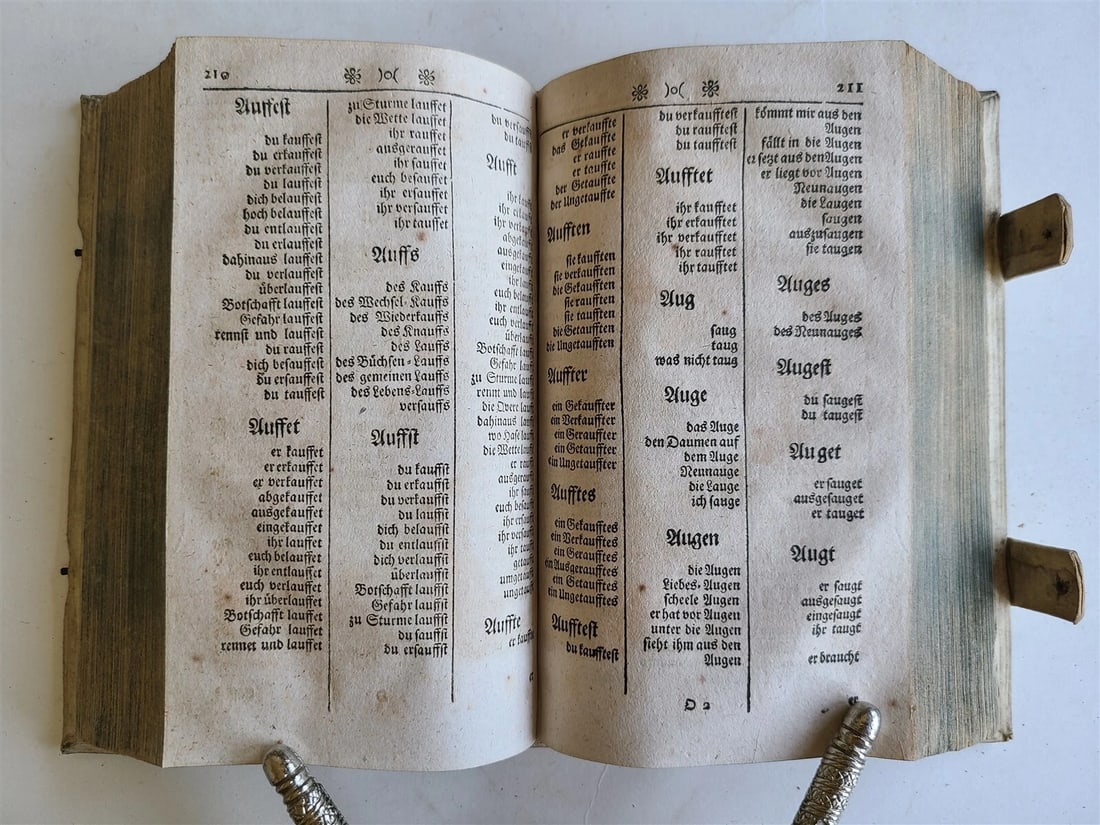 210 )o(
Auffest
du kauffest
du erkauffest
du verkauffest
du lauffest
dich belauffest
hoch belauffest
du entlauffest
du erlauffest
dahinaus lauffest
du verlauffest
überlauffest
Botschafft lauffest
Gefahr lauffest
rennst und lauffest
du rauffest
dich besauffest
du ersauffest
du tauffest
Auffet
er kauffet
er erkauffet
er verkauffet
abgekauffet
ausgekauffet
eingekauffet
ihr lauffet
euch belauffet
ihr entlauffet
euch verlauffet
ihr überlauffet
Botschafft lauffet
Gefahr lauffet
rennet und lauffet
zu Sturme lauffet
die Wette lauffet
ihr rauffet
ausgerauffet
ihr sauffet
euch besauffet
ihr ersauffet
ihr versauffet
ihr tauffet
Auffs
des Kauffs
des Wechsel-Kauffs
des Wiederkauffs
des Knauffs
des Lauffs
des Büchsen-Lauffs
des gemeinen Lauffs
des Lebens-Lauffs
versauffs
Auffst
du kauffst
du erkauffst
du verkauffst
du lauffst
dich belauffst
du entlauffst
dich verlauffst
überlauffst
Botschafft lauffst
Gefahr lauffst
zu Sturme lauffst
du sauffst
du ersauffst
du
du
Aufft
ihr
ihr
ihr
euch
ihr
euch
Botschafft
Gefahr
zu Sturme
rennt und
die
dahinaus
wo Hase
die Wette
er
ihr
euch
ihr
ihr
ihr
Auffte
er
211 )o(
er verkauffte
das Gekauffte
er rauffte
er tauffte
der Getauffte
der Ungetauffte
Aufften
sie kaufften
sie verkaufften
die Gekaufften
sie raufften
sie taufften
die Getaufften
die Ungetaufften
Auffter
ein Gekauffter
ein Verkauffter
ein Gerauffter
ein Getauffter
ein Ungetauffter
Aufftes
ein Gekaufftes
ein Verkaufftes
ein Gerauftes
ein Ausgerauftes
ein Getaufftes
ein Ungetaufftes
Aufftest
du kaufftest
du verkaufftest
du raufftest
du taufftest
Aufftet
ihr kaufftet
ihr erkaufftet
ihr verkaufftet
ihr raufftet
ihr taufftet
Aug
saug
taug
was nicht taug
Auge
das Auge
den Daumen auf
dem Auge
Neunauge
die Lauge
ich sauge
Augen
die Augen
Liebes-Augen
scheele Augen
er hat vor Augen
unter die Augen
sieht ihm aus den
Augen
D 2
kömmt mir aus den
Augen
fällt in die Augen
er setzt aus den Augen
er liegt vor Augen
Neunaugen
die Laugen
saugen
auszusaugen
sie taugen
Auges
des Auges
des Neunauges
Augest
du saugest
du taugest
Auget
er sauget
ausgesauget
er tauget
Augt
er saugt
ausgesaugt
eingesaugt
ihr taugt
er braucht
er